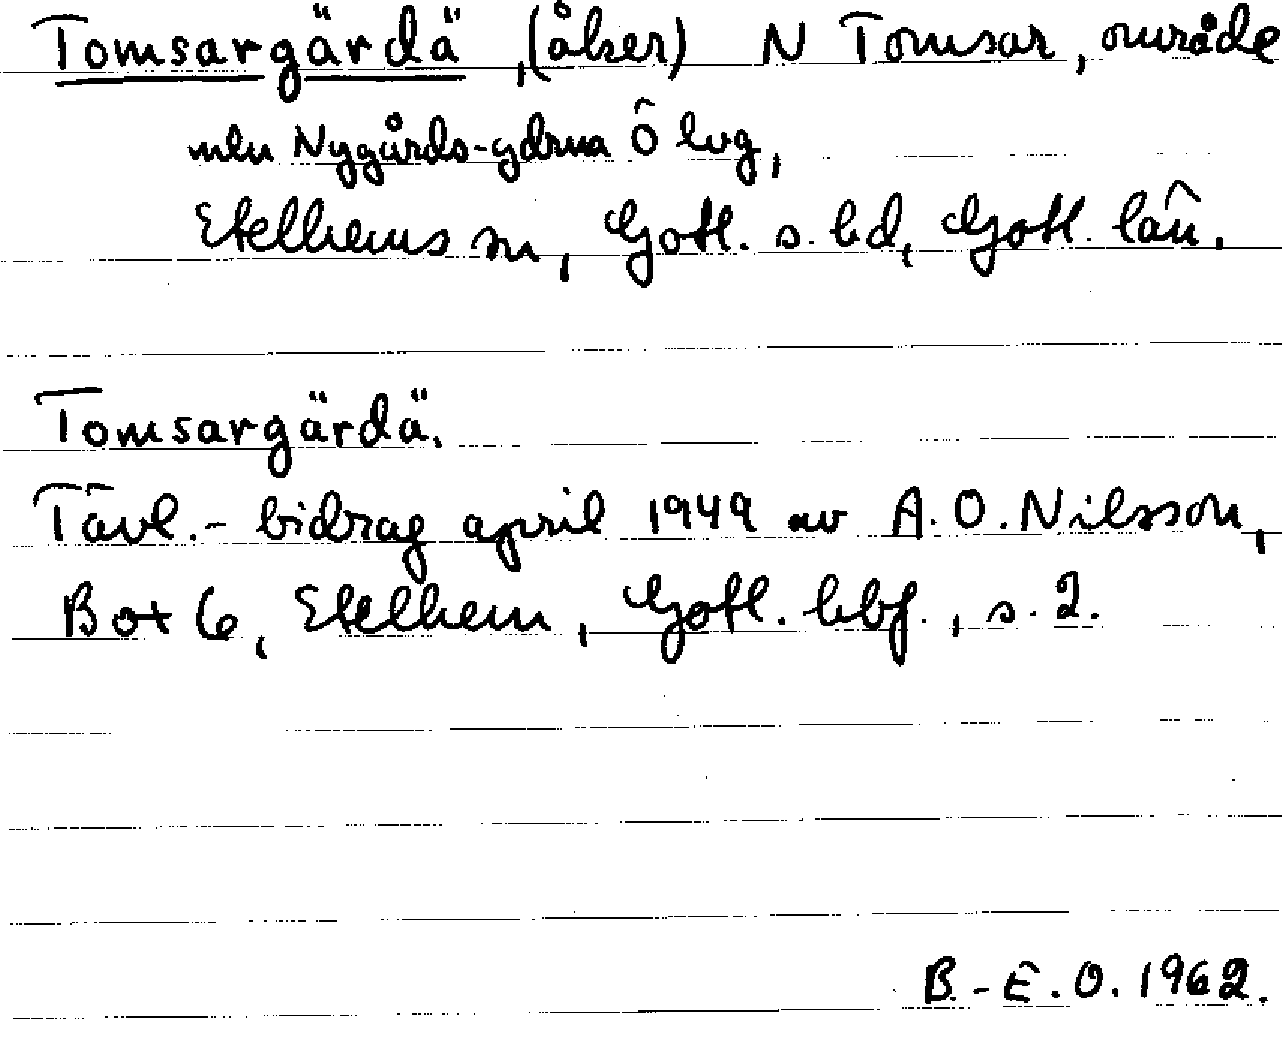 Tomsargärdä, (åker) N Tomsar, område
mln Nygårds-gdrna Ö lvg,
Etelhems sn, Gotl. s. hd, Gotl. län.
Tomsargärdä.
Tävl.- bidrag april 1949 av A. O. Nilsson,
Box 6, Etelhem, Gotl. hbf., s. 2.
B.-E.O. 1962.